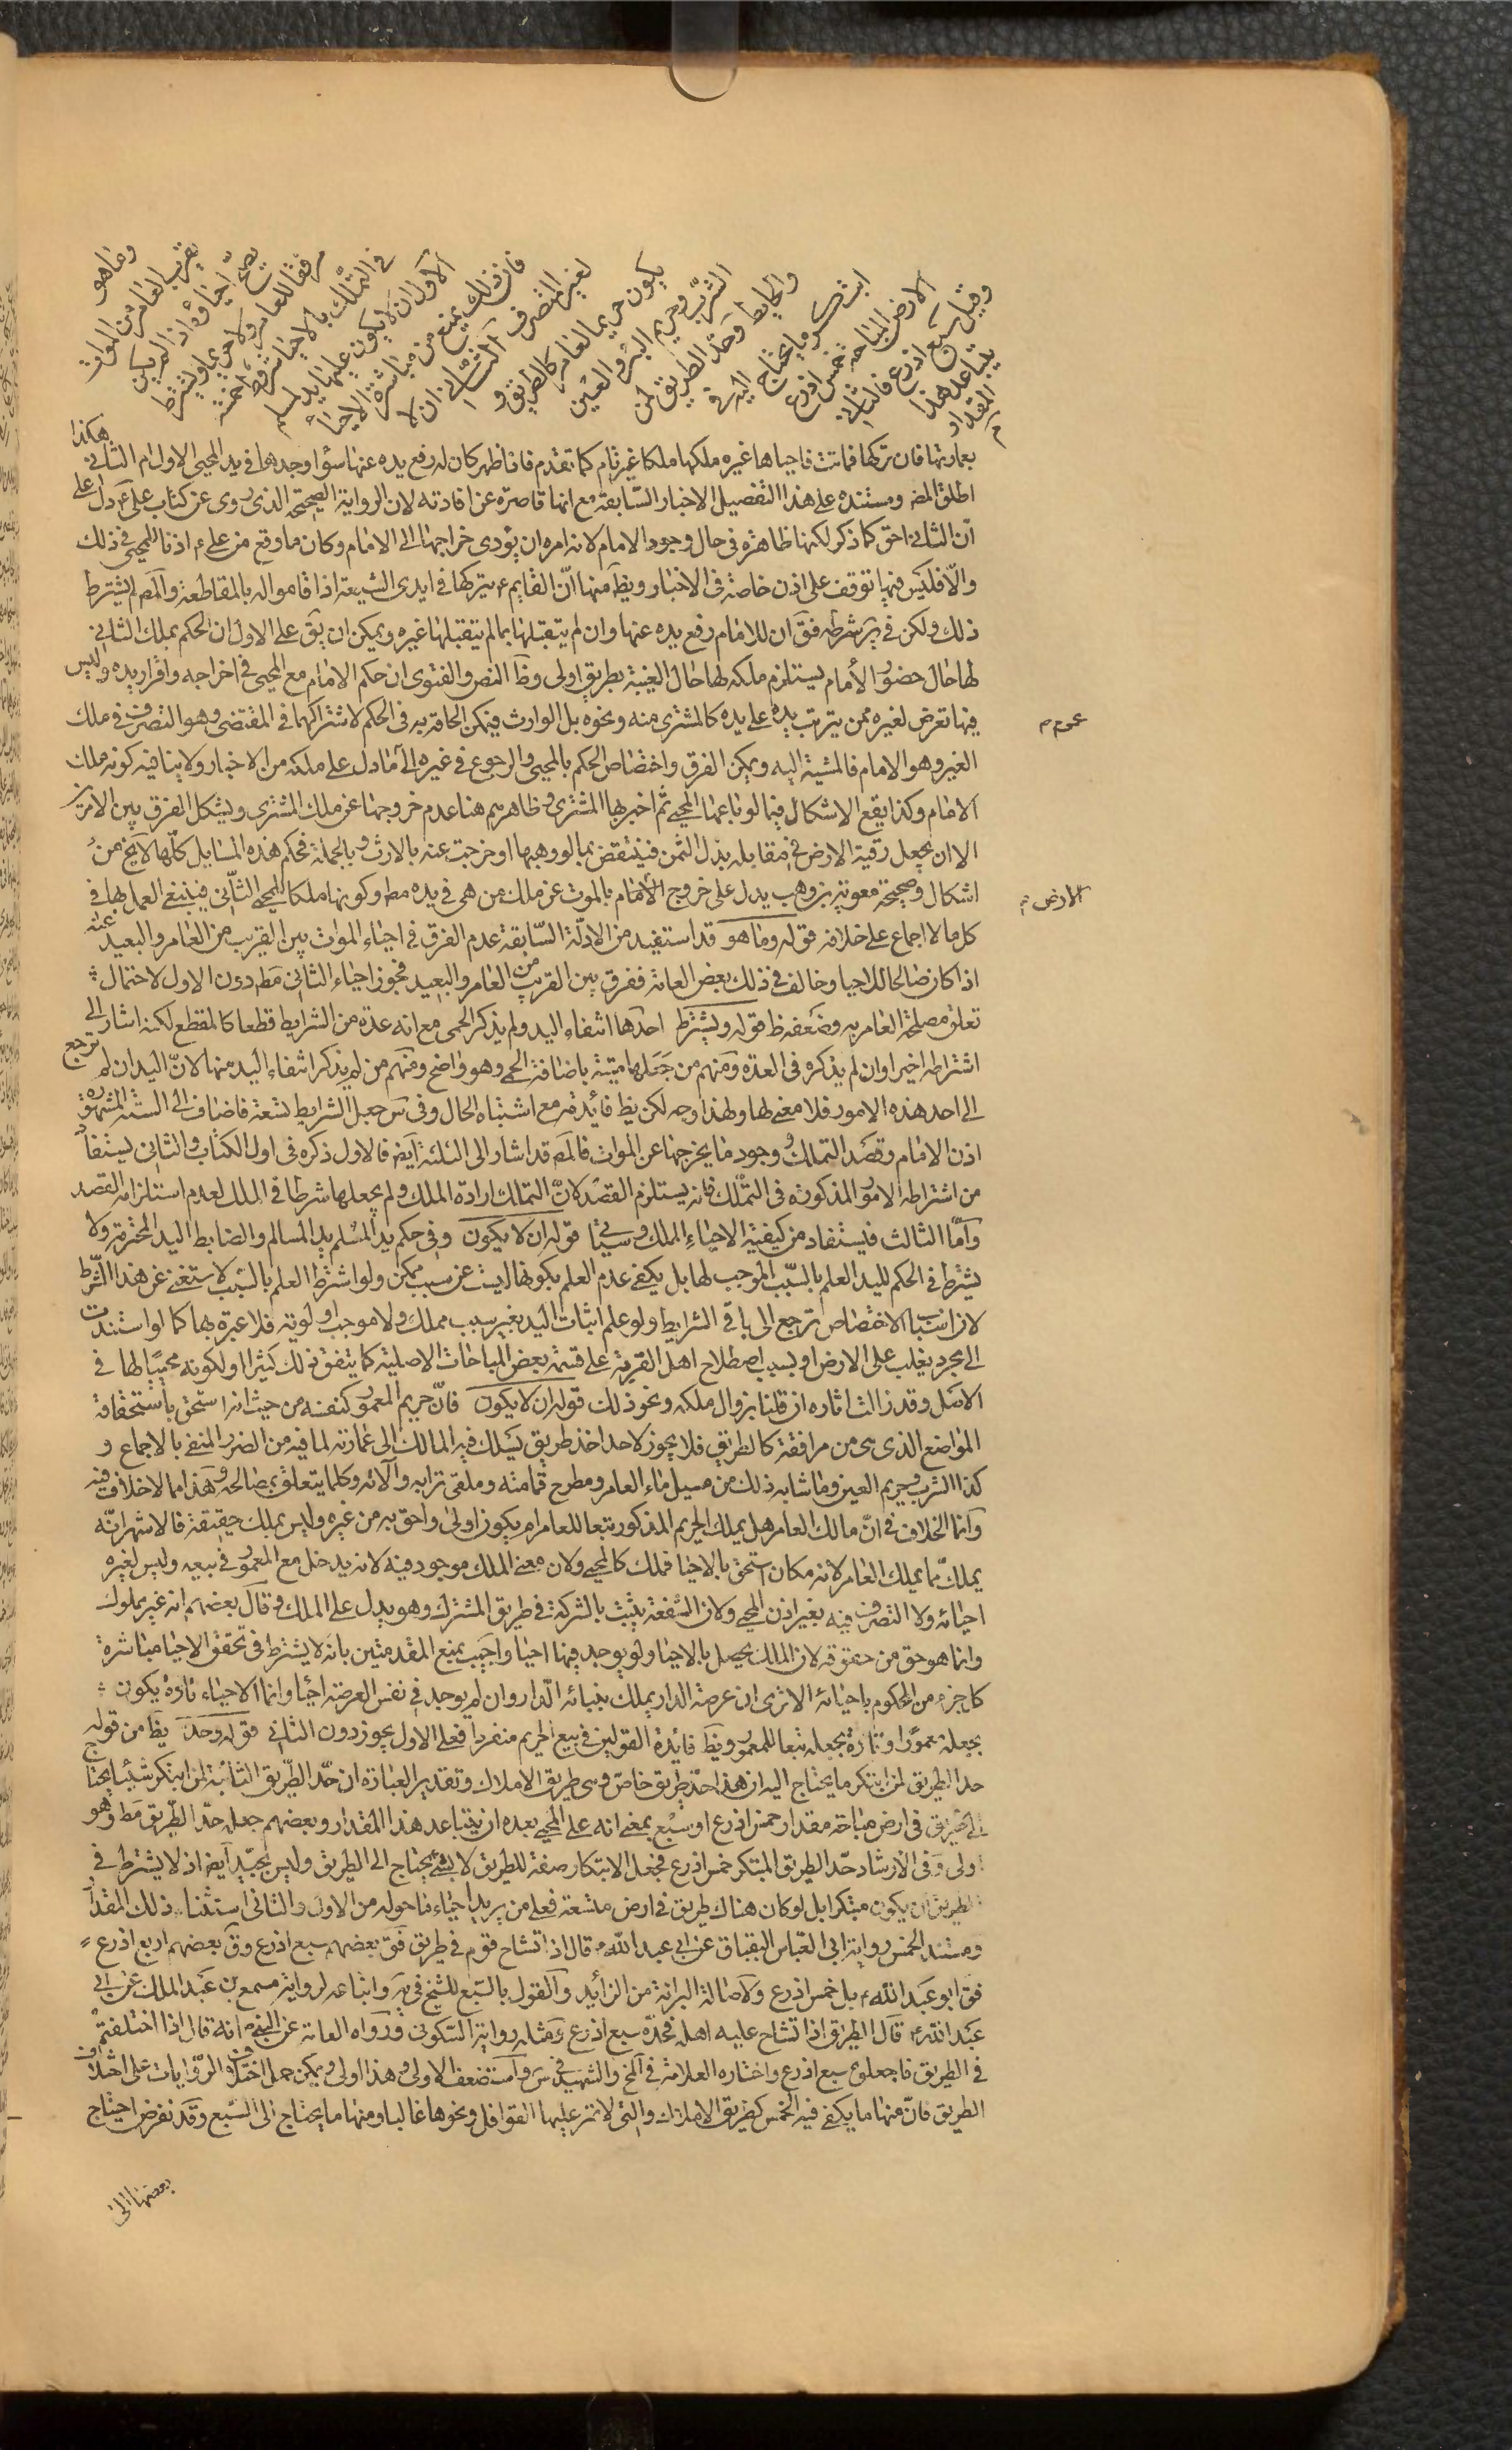 وما هو
بقرب العامر من الموات
يصح احياؤه اذا لم يكن
مرفقا للعامر ولا حريما و يشترط
في التملك بالاحياء شروط خمسة
الاول ان لا يكون عليها يد لمسلم
فان ذلك يمنع من مباشرة الاحياء
لغير المتصرف الثاني ان لا
يكون حريما لعامر كالطريق و
الشرب وحريم البئر و العين
والحايط وحد الطريق لمن
ابتكر ما يحتاج اليه في
الارض المباحة خمس اذرع
وقيل سبع اذرع فالثاني
يتباعد هذا
المقدار
بعمارتها فان تركها فماتت فاحياها غيره ملكها ملكا غير تام كما تقدم فاذا ظهر كان له رفع يده عنها سواء وجدها في يد المحيي الاول ام الثاني هكذا
اطلق المصـ ومستنده على هذا التفصيل الاخبار السابقة مع انها قاصرة عن افادته لان الرواية الصحيحة الذي روى عن كتاب علي ع دل على
ان الثاني احق كما ذكر لكنها ظاهرة في حال وجود الامام لانه امره ان يؤدي خراجها الى الامام وكان ما وقع من علي ع اذنا للمحيي في ذلك
والا فليس فيها توقف على اذن خاصة في الاخبار ويظ منها ان القايم ع يتركها في ايدي الشيعة اذا قاموا له بالمقاطعة والمصـ لم يشترط
ذلك ولكن في ير شرطه فق ان للامام رفع يده عنها وان لم يتقبلها بما لم يتقبلها غيره ويمكن ان يق على الاول ان الحكم بملك الثاني
لها حال حضور الامام يستلزم ملكه لها حال الغيبة بطريق اولى وظ النص والفتوى ان حكم الامام مع المحيي في اخراجه واقرار يده وليس
فيها تعرض لغيره ممن يترتب يده على يده كالمشتري منه ونحوه بل الوارث فيمكن الحاقه به في الحكم لاشتراكهما في المقتضي وهو التصرف في ملك
الغير وهو الامام فالمشية اليه ويمكن الفرق واختصاص الحكم بالمحيي والرجوع في غيره الى ما دل على ملكه من الاخبار ولا ينافيه كونه ملك
الامام وكذا يقع الاشكال فيما لو باعها المحيي ثم اخربها المشتري وظاهرهم هنا عدم خروجها عن ملك المشتري ويشكل الفرق بين الامرين
الا ان يجعل رقبة الارض في مقابلة بذل الثمن فينتقض بما لو وهبها او خرجت عنه بالارث وبالجملة فحكم هذه المسايل كلها لا يخ من
اشكال وصحيحة معوية بن وهب يدل على خروج الارض بالموت عن ملك من هي في يده مط وكونها ملكا للمحيي الثاني فينبغي العمل بها في
كل ما لا اجماع على خلافه قوله وما هو قد استفيد من الادلة السابقة عدم الفرق في احياء الموات بين القريب من العامر والبعيد عنه
اذا كان صالحا للاحياء وخالف في ذلك بعض العامة ففرق بين القريب من العامر والبعيد فجوز احياء الثاني مط دون الاول لاحتمال
تعلق مصلحة العامر به وضعفه ظ قوله ويشترط احدها انتفاء اليد ولم يذكر الحمى مع انه عده من الشرايط قطعا كالمقطع لكنه اشار الى
اشتراطه اخيرا وان لم يذكره في العدة ومنهم من جعلها ستة باضافة الحمى وهو واضح ومنهم من لم يذكر انتفاء اليد منها لان اليد ان لم ترجع
الى احد هذه الامور فلا معنى لها ولهذا وجه لكن يظ فائدته مع اشتباه الحال وفي س جعل الشرايط تسعة فاضاف الى الستة المشهورة
اذن الامام وقصد التملك وجود ما يخرجها عن الموات فالمصـ قد اشار الى الثلثة ايض فالاول ذكره في اول الكتاب والثاني يستفاد
من اشتراطه الامور المذكورة في التملك فانه يستلزم القصد لان التملك ارادة الملك ولم يجعلها شرطا في الملك لعدم استلزامه القصد
واما الثالث فيستفاد من كيفية الاحياء المملك وسيأتي قوله ان لا يكون وفي حكم يد المسلم يد المسالم والضابط اليد المحترمة ولا
يشترط في الحكم لليد العلم بالسبب الموجب لها بل يكفي عدم العلم بكونها ليست عن سبب مملك ولو اشترط العلم بالسبب لاستغنى عن هذا الشرط
لان اسباب الاختصاص ترجع الى باقي الشرايط ولو علم اثبات اليد بغير سبب مملك ولا موجب اولوية فلا عبرة بها كما لو استندت
الى مجرد تغلب على الارض او بسبب اصطلاح اهل القرية على قسمة بعض المباحات الاصلية كما يتفق ذلك كثيرا او لكونه محييا لها في
الاصل وقد زالت اثاره ان قلنا بزوال ملكه ونحو ذلك قوله ان لا يكون فان حريم المعمور كنفسه من حيث انه استحق باستحقاقه
المواضع الذي هي من مرافقه كالطريق فلا يجوز لاحد اخذ طريق يسلك فيه المالك الى عمارته لما فيه من الضرر المنفي بالاجماع و
كذا الشرب وحريم العين وما شابه ذلك من مسيل ماء العامر ومطرح قمامته وملقى ترابه وآلاته وكلما يتعلق بمصالحه وهذا مما لا خلاف فيه
وانما الخلاف في ان مالك العامر هل يملك الحريم المذكور تبعا للعامر ام يكون اولى واحق به من غيره وليس بملك حقيقة فالاشهر انه
يملك كما يملك العامر لانه مكان استحق بالاحياء فملك كالمحيي ولان معنى الملك موجود فيه لانه يدخل مع المعمور في بيعه وليس لغيره
احيائه ولا التصرف فيه بغير اذن المحيي ولان الشفعة يثبت بالشركة في طريق المشترك وهو يدل على الملك وقال بعضهم انه غير مملوك
وانما هو حق من حقوقه لان الملك يحصل بالاحياء ولم يوجد فيها احياء واجيب بمنع المقدمتين بانه لا يشترط في تحقق الاحياء مباشرة
كل جزء من المحكوم باحيائه الا ترى ان عرصة الدار يملك ببنائه الدار وان لم يوجد في نفس العرصة احياء وانما الاحياء تارة يكون
بجعله معمورا وتارة بجعله تبعا للمعمور ويظ فائدة القولين في بيع الحريم منفردا فعلى الاول يجوز دون الثاني قوله وحد يظ من قوله
حد الطريق لمن ابتكر ما يحتاج اليه ان هذا حد طريق خاص وهي طريق الاملاك وتقدير العبارة ان حد الطريق الثابتة لمن ابتكر شيئا يحتاج
الى طريق في ارض مباحة مقدار خمس اذرع او سبع بمعنى انه على المحيي بعده ان يتباعد هذا المقدار وبعضهم جعله حد الطريق مط وهو
اولى وفي الارشاد حد الطريق المبتكر خمس اذرع فجعل الابتكار صفة للطريق لا بشيء يحتاج الى الطريق وليس بجيد ايض اذ لا يشترط في
الطريق ان يكون مبتكرا بل لو كان هناك طريق في ارض متسعة فعلى من يريد احياء ما حوله من الاول والثاني استثناء ذلك المقدار
ومستند الخمس رواية ابي العباس البقباق عن ابي عبد الله ع قال اذا تشاح قوم في طريق فق بعضهم سبع اذرع وق بعضهم اربع اذرع
فق ابو عبد الله ع بل خمس اذرع ولاصالة البرائة من الزايد والقول بالسبع للشيخ في ية واتباعه لرواية مسمع بن عبد الملك عن ابي
عبد الله ع قال الطريق اذا تشاح عليه اهله فحده سبع اذرع ومثله رواية السكوني ورواه العامة عن النبي ص انه قال اذا اختلفتم
في الطريق فاجعلوه سبع اذرع واختاره العلامة في لخ والشهيد في س واستضعف الاولى وهذا اولى ويمكن حمل اختلاف الروايات على اختلاف
الطريق فان منها ما يكفي فيه الخمس كطريق الاملاك والتي لا تمر عليها القوافل ونحوها غالبا ومنها ما يحتاج الى السبع وقد نفرض احتياج
بعضها الى
عموم م
الارض م